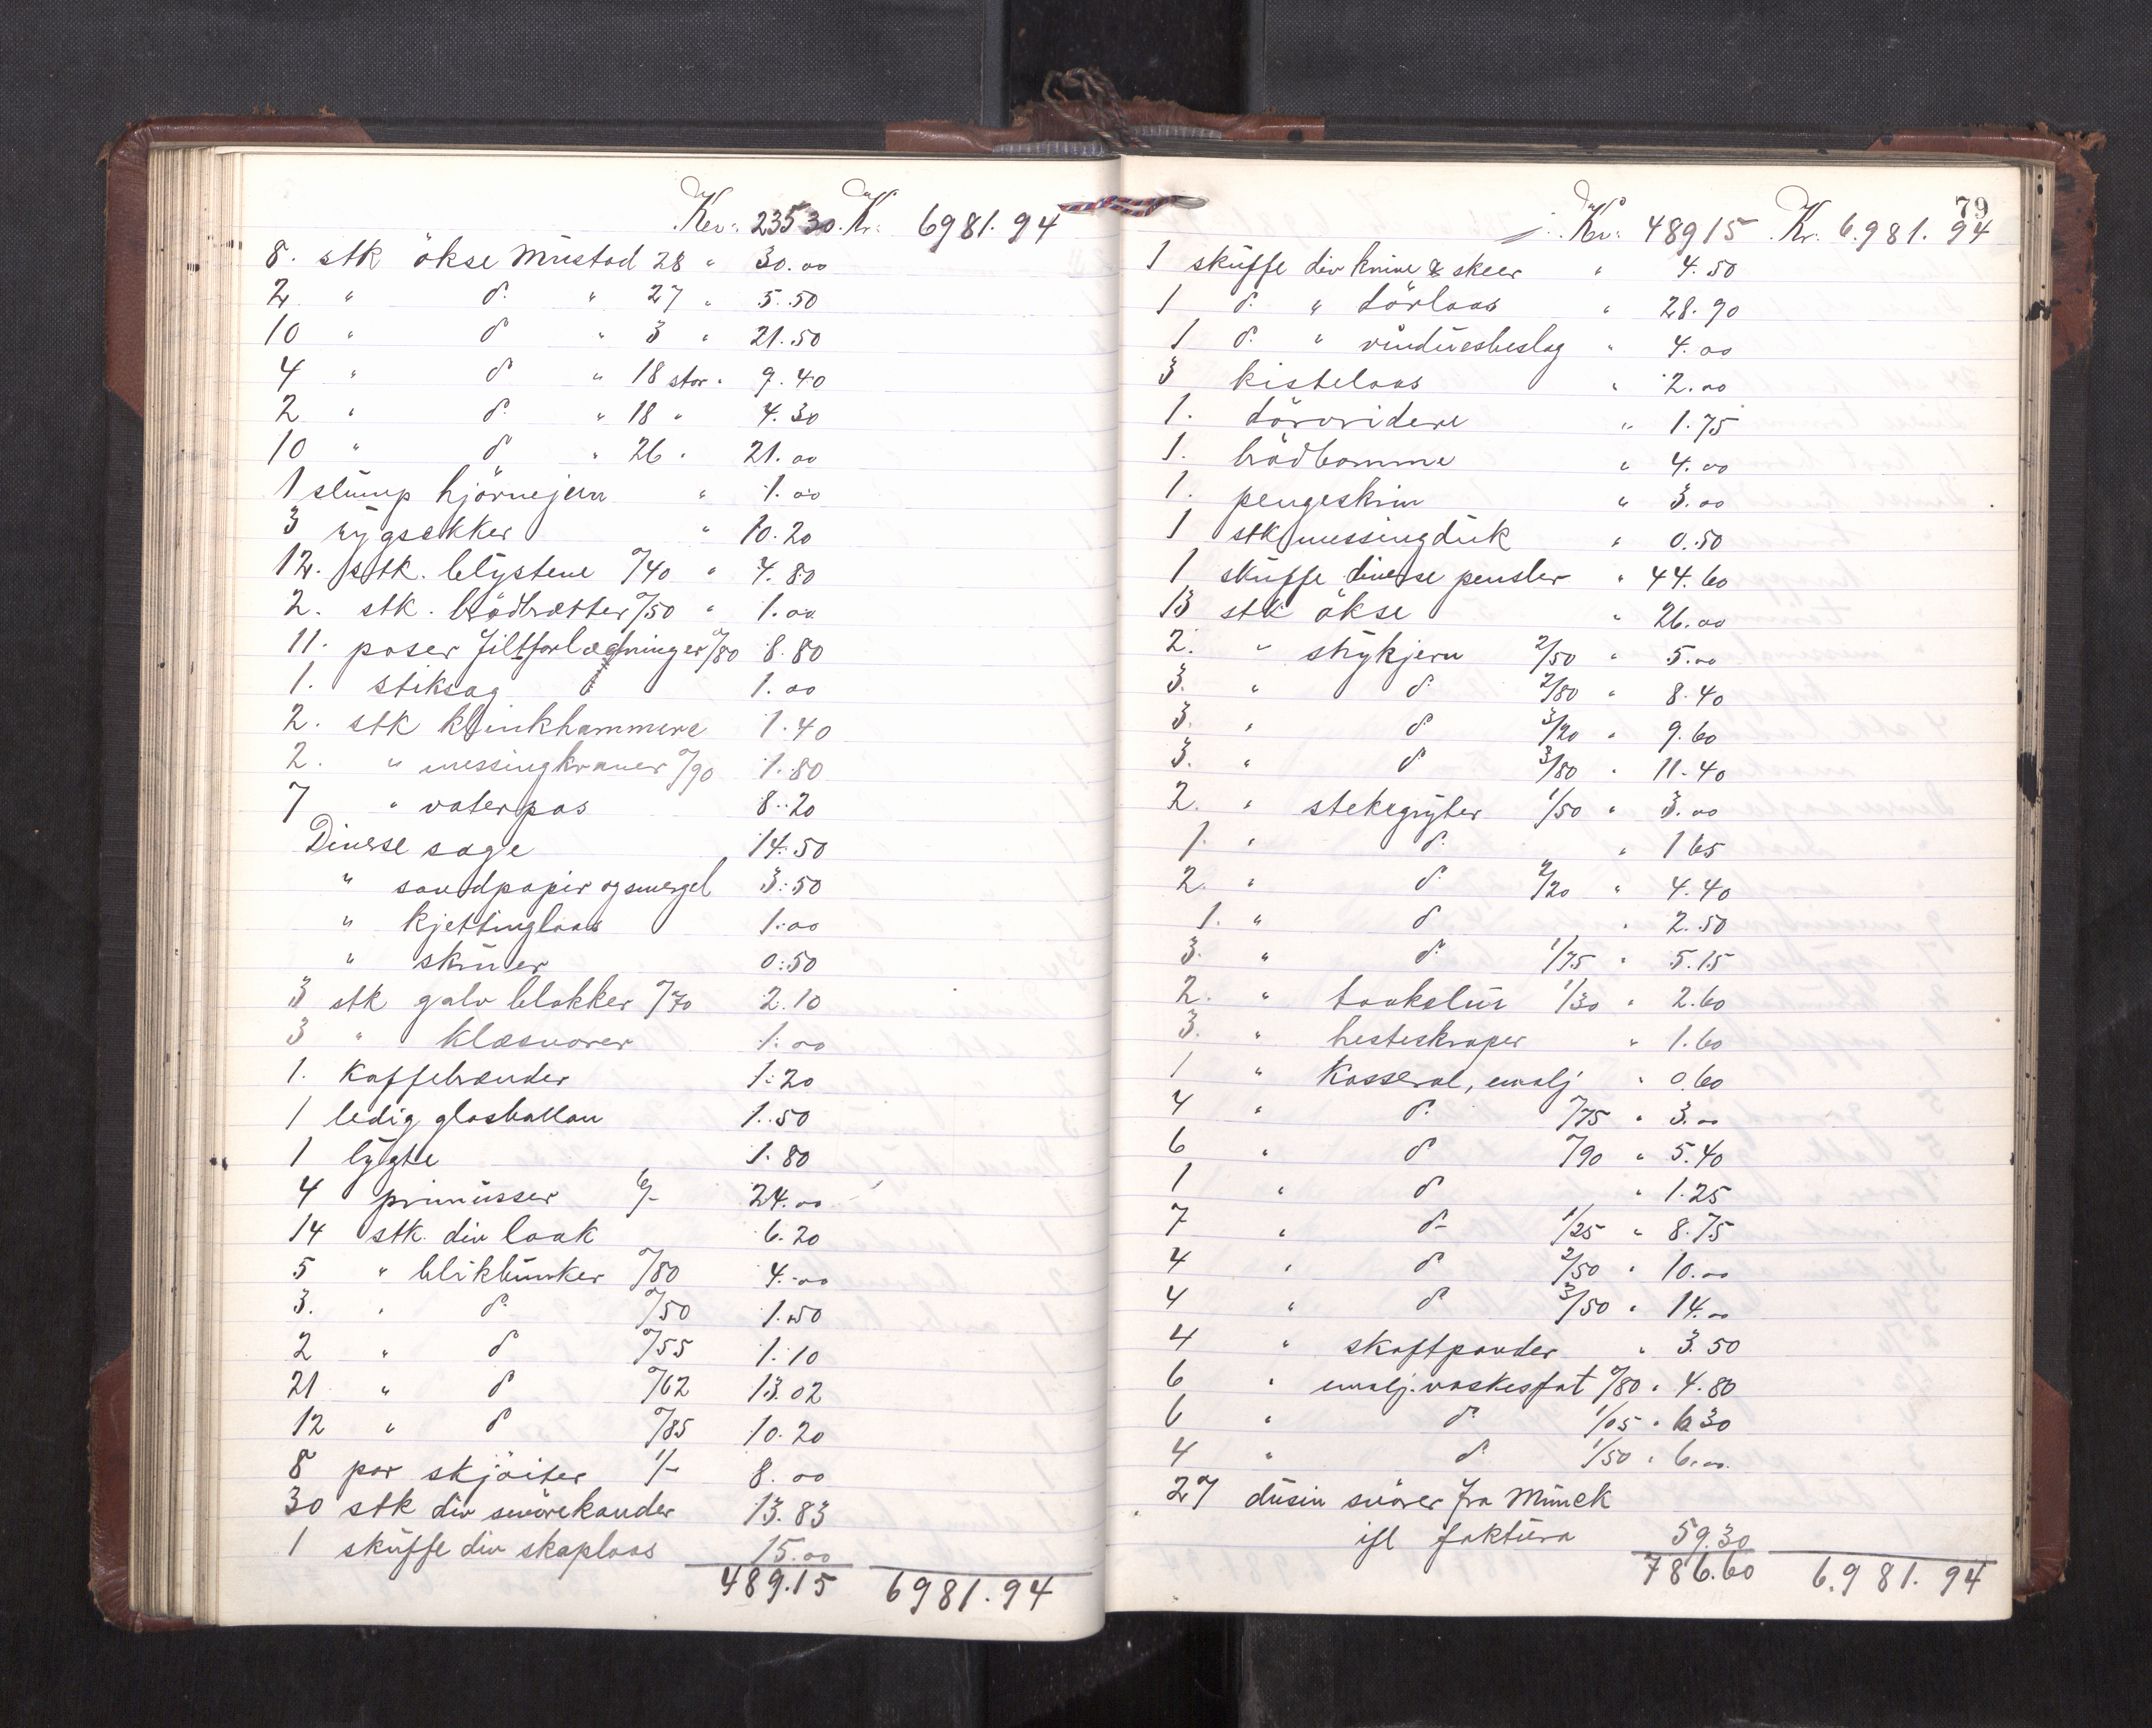 Kr: 235 30. Kr: 6981. 94
8. stk økse Mustad 28 " 30.00
2 " d. " 27 " 5.50
10 " d " 3 " 21.50
4 " d " 18 stor " 9.40
2 " d. " 18 " 4.30
10 " d " 26 " 21.00
1 slump hjörnejern " 1.00
3 rygsekker " 10.20
12. stk. blystene 0/40 " 4.80
2. stk. brödbretter 0/50 " 1.00
11. poser filtforlægninger 0/80 8.80
1. stiksag 1.00
2. stk klinkhammere 1.40
2. " messingkraner 0/90 1.80
7 " vaterpas 8.20
Diverse sage 14.50
" sandpapir og smergel 3.50
" kjettinglaas 1.00
" skruer 0.50
3 stk galv blokker 0/70 2.10
3 " 1.00
1. Kaffebrænder 1.20
1 ledig glasballon 1.50
1 lygte 1.80
4 primusser 6/- 24.00
14 stk. div laak 6.20
5 " blikbunker 0/80 4.00
3. " d. 0/50 1.50
2 " d 0/55 1.10
21 " d 0/62 13.02
12 " d 0/85 10.20
8 par skjöiter 1/- 8.00
30 stk div smörekander 13.83
1 skuffe div skaplaas 15.00
489.15 6981.94
79
Kr: 48915 Kr. 6.981. 94
1 skuffe div knive & skeer " 4.50
1 d. " dörlaas " 28.90
1 d. " vinduesbeslag " 4.00
3 kistelaas " 2.00
1. dörvridere " 1.75
1. brödtomme " 4.00
1. pengeskrin " 3.00
1 stk messingduk " 0.50
1 skuffe diverse pensler " 44.60
13 stk økse " 26.00
2. " strykjern 2/50 " 5.00
3. " d. 2/80 " 8.40
3. " d 3/20 " 9.60
3. " d 3/80 " 11.40
2. " stekegryter 1/50 " 3.00
1. " d. " 1 65
2. " d 2/20 " 4.40
1. " d " 2.50
3. " d. 1/75 " 5.15
2. " taakelur 1/30 " 2.60
3. " hesteskraper " 1.60
1 " Kasserol, emalj " 0.60
4 " d. 0/75 " 3.00
6 " d 0/90 " 5.40
1 " d " 1.25
7 " d 1/25 " 8.75
4 " d 2/50 " 10.00
4 " d 3/50 " 14.00
4 " skaftpander " 3.50
6 " emalj. vaskesfat 0/80 " 4.80
6 " d. 1/05 " 6 30
4 " d. 1/50 " 6.00
27 dusin snörer fra Munck
ifl faktura 59.30
786.60 6.981. 94